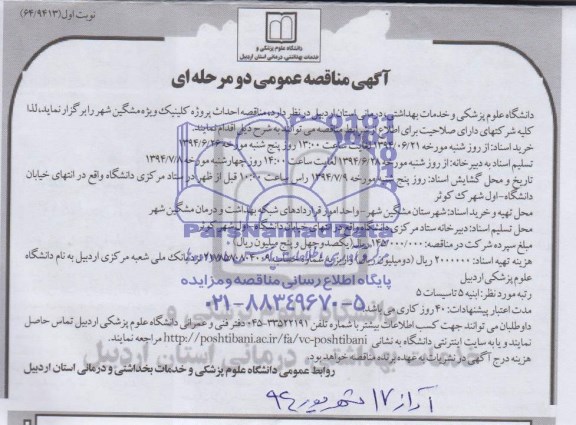 نوبت اول(۶۴/۹۴۱۳)
دانشگاه علوم پزشکی و
خدمات بهداشتی درمانی استان اردبیل
آگهی مناقصه عمومی دو مرحله ای
دانشگاه علوم پزشکی و خدمات بهداشتی درمانی استان اردبیل در نظر دارد، مناقصه احداث پروژه کلینیک ویژه مشگین شهر را برگزار نماید، لذا
کلیه شرکتهای دارای صلاحیت برای اطلاع از شرایط مناقصه می توانند به شرح ذیل اقدام نمایند.
خرید اسناد: از روز شنبه مورخه ۱۳۹۴/۰۶/۲۱ لغایت ساعت ۱۳:۰۰ روز پنج شنبه مورخه ۱۳۹۴/۶/۲۶
تسلیم اسناد به دبیرخانه: از روز شنبه مورخه ۱۳۹۴/۶/۲۸ لغایت ساعت ۱۴:۰۰ روز چهارشنبه مورخه ۱۳۹۴/۷/۸
تاریخ و محل گشایش اسناد: روز پنج شنبه مورخه ۱۳۹۴/۷/۹ راس ساعت ۱۰:۰۰ قبل از ظهر در ستاد مرکزی دانشگاه واقع در انتهای خیابان
دانشگاه-اول شهرک کوثر
محل تهیه و خرید اسناد: شهرستان مشگین شهر- واحد امور قراردادهای شبکه بهداشت و درمان مشگین شهر
محل تسلیم اسناد: دبیرخانه ستاد مرکزی دانشگاه واقع در انتهای خیابان دانشگاه اول شهرک کوثر
مبلغ سپرده شرکت در مناقصه: ۱۴۵/۰۰۰/۰۰۰ ریال (یکصد و چهل و پنج میلیون ریال)
هزینه تهیه اسناد: ۲۰۰۰۰۰۰ ریال (دو میلیون ریال) واریزی به شماره حساب نزد بانک ملی شعبه مرکزی اردبیل به نام دانشگاه
علوم پزشکی اردبیل
رتبه مورد نظر: ابنیه ۵ تاسیسات ۵
مدت اعتبار پیشنهادات: ۴۰ روز کاری می باشد.
داوطلبان می توانند جهت کسب اطلاعات بیشتر با شماره تلفن ۳۳۵۲۲۱۹۱-۰۴۵ دفتر فنی و عمرانی دانشگاه علوم پزشکی اردبیل تماس حاصل
نمایند و یا به سایت اینترنتی دانشگاه به نشانی http://poshtibani.ac.ir/fa/vc-poshtibani مراجعه نمایند.
هزینه درج آگهی در نشریات به عهده برنده مناقصه خواهد بود.
روابط عمومی دانشگاه علوم پزشکی و خدمات بخداشتی و درمانی استان اردبیل
ParsNamadData
پایگاه اطلاع رسانی مناقصه و مزایده
۰۲۱-۸۸۳۴۹۶۷۰-۵
آراز ۱۷ شهریور ۹۴